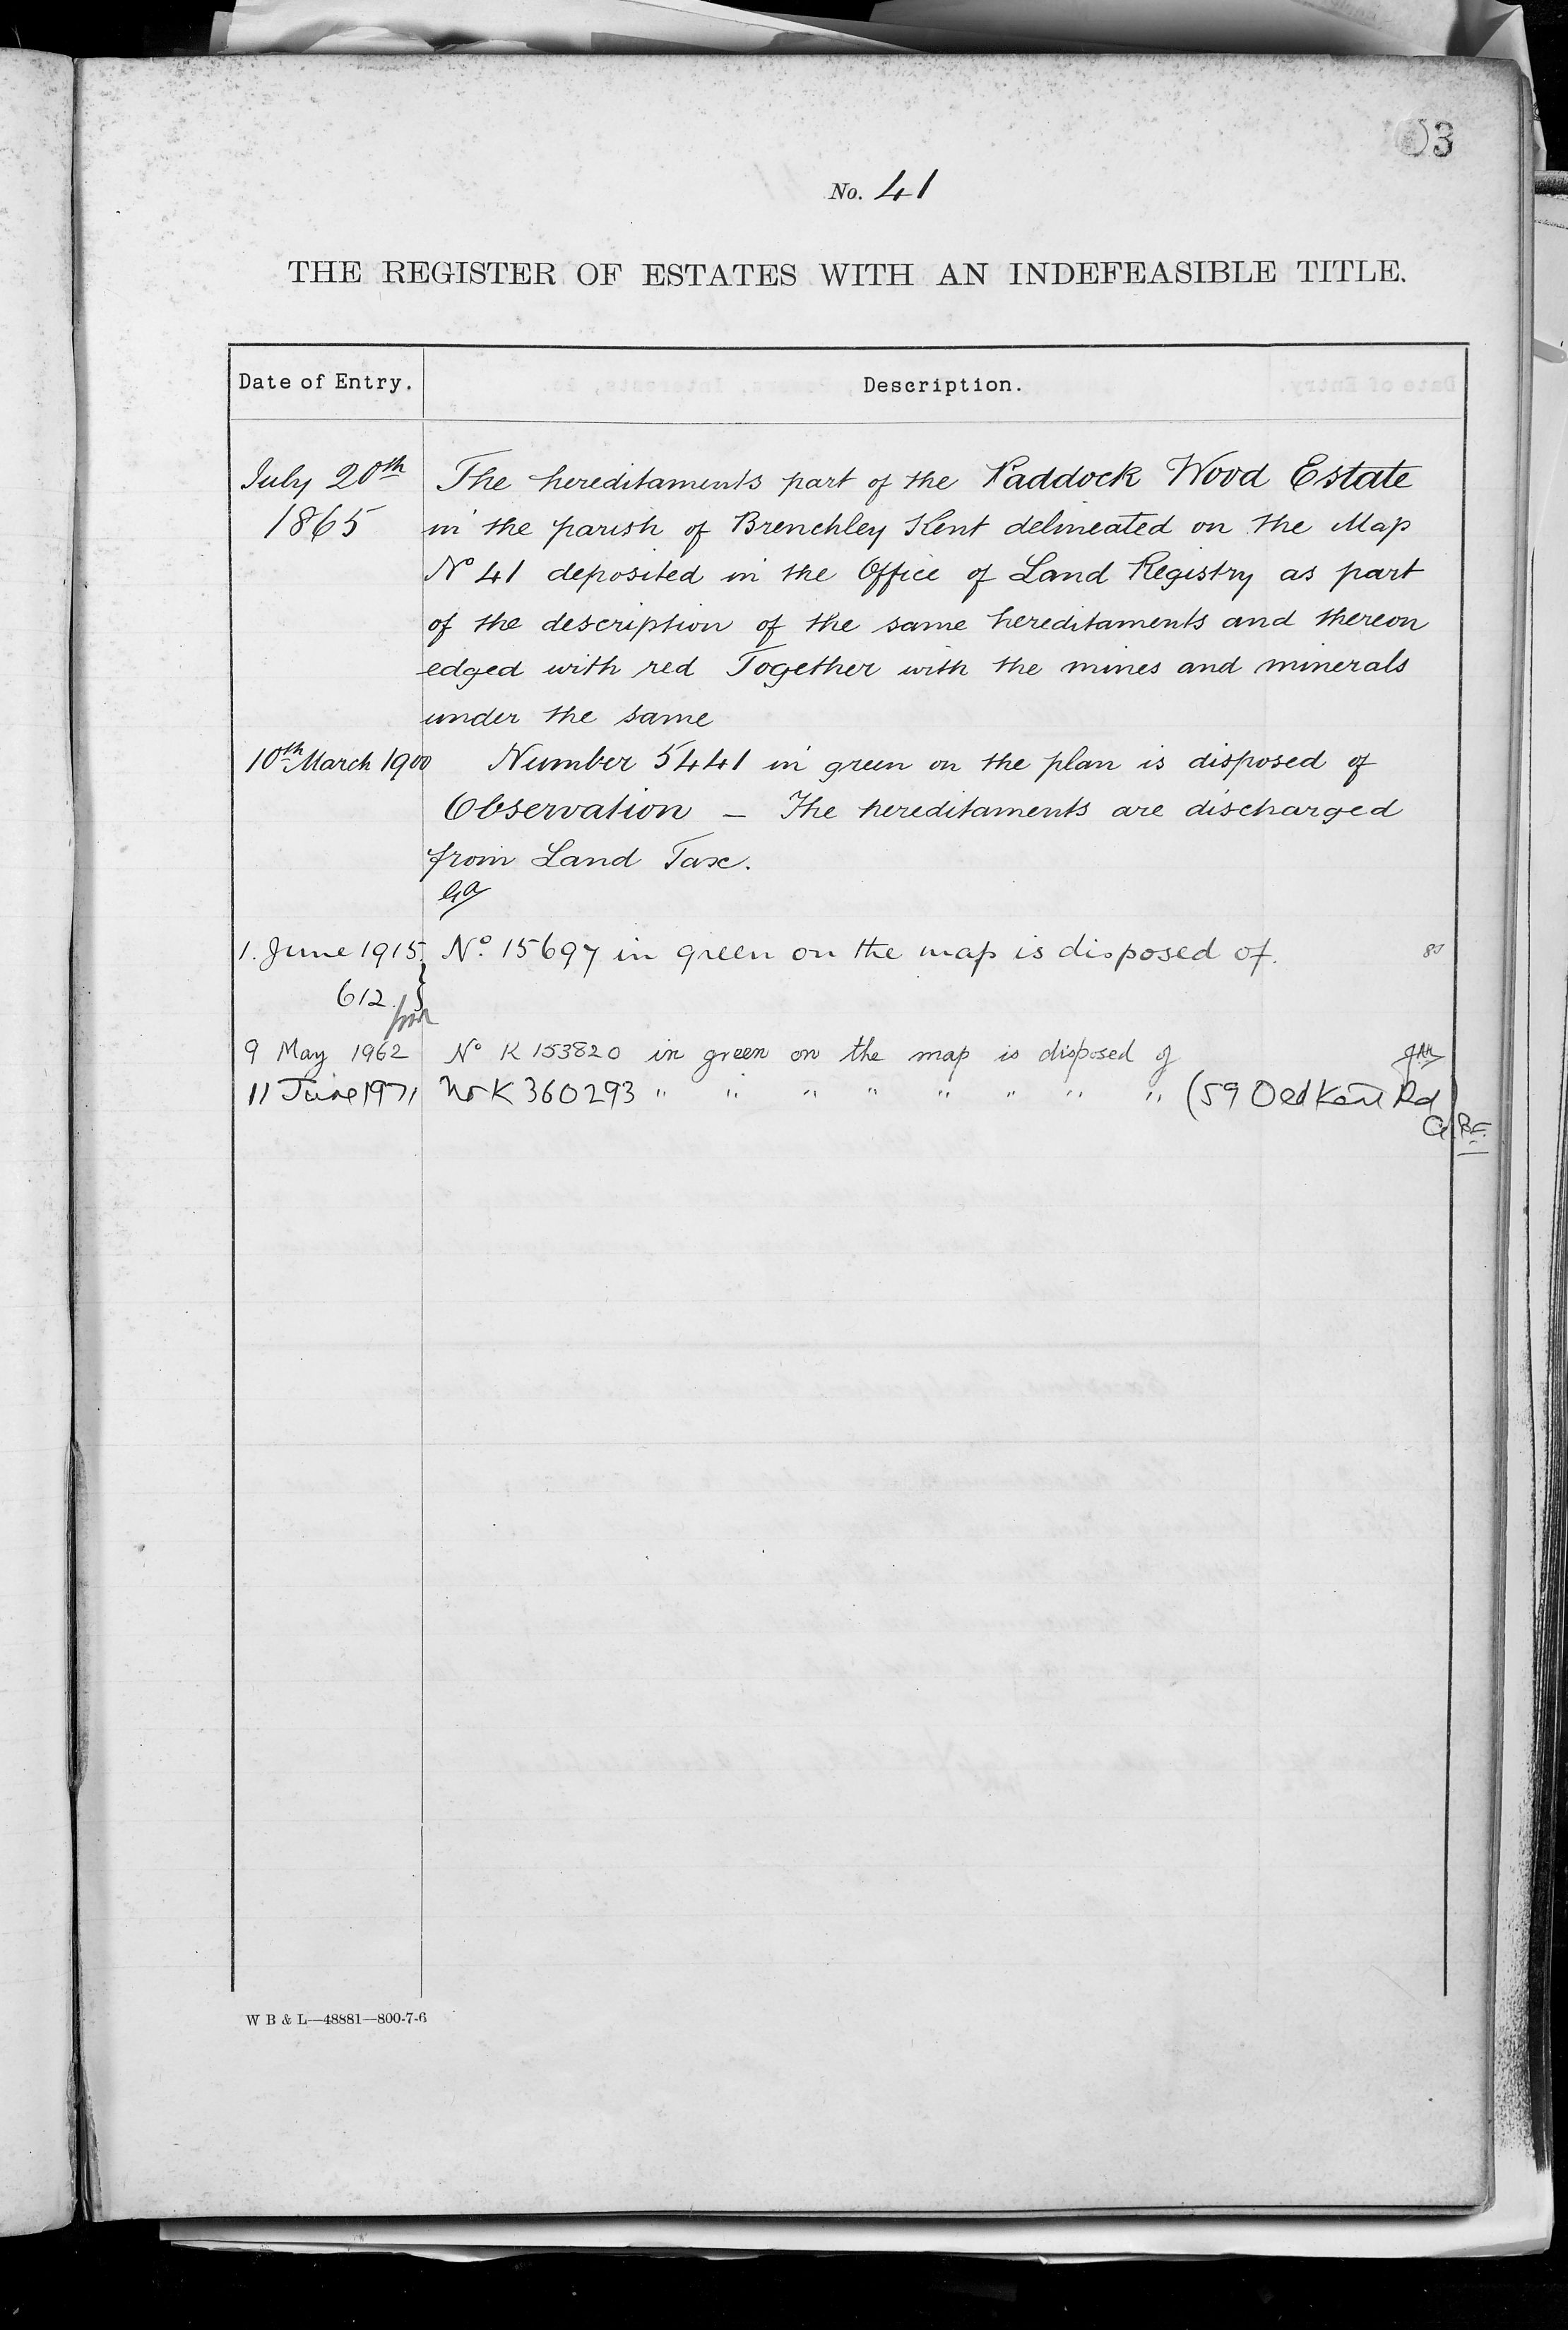 3
No. 41
THE REGISTER OF ESTATES WITH AN INDEFEASIBLE TITLE.
Date of Entry. Description.
July 20th The hereditaments part of the Paddock Wood Estate
1865 in the parish of Brenchley Kent delineated on the Map
No 41 deposited in the Office of Land Registry as part
of the description of the same hereditaments and thereon
edged with red Together with the mines and minerals
under the same
10th March 1900 Number 5441 in green on the plan is disposed of
Observation — The hereditaments are discharged
from Land Tax.
1. June 1915. No. 15697 in green on the map is disposed of.
612.
9 May 1962 No K 153820 in green on the map is disposed of
11 June 1971 No K 360293 " " " " " " " " (59 Old Kent Rd)
W B & L—48881—800-7-6